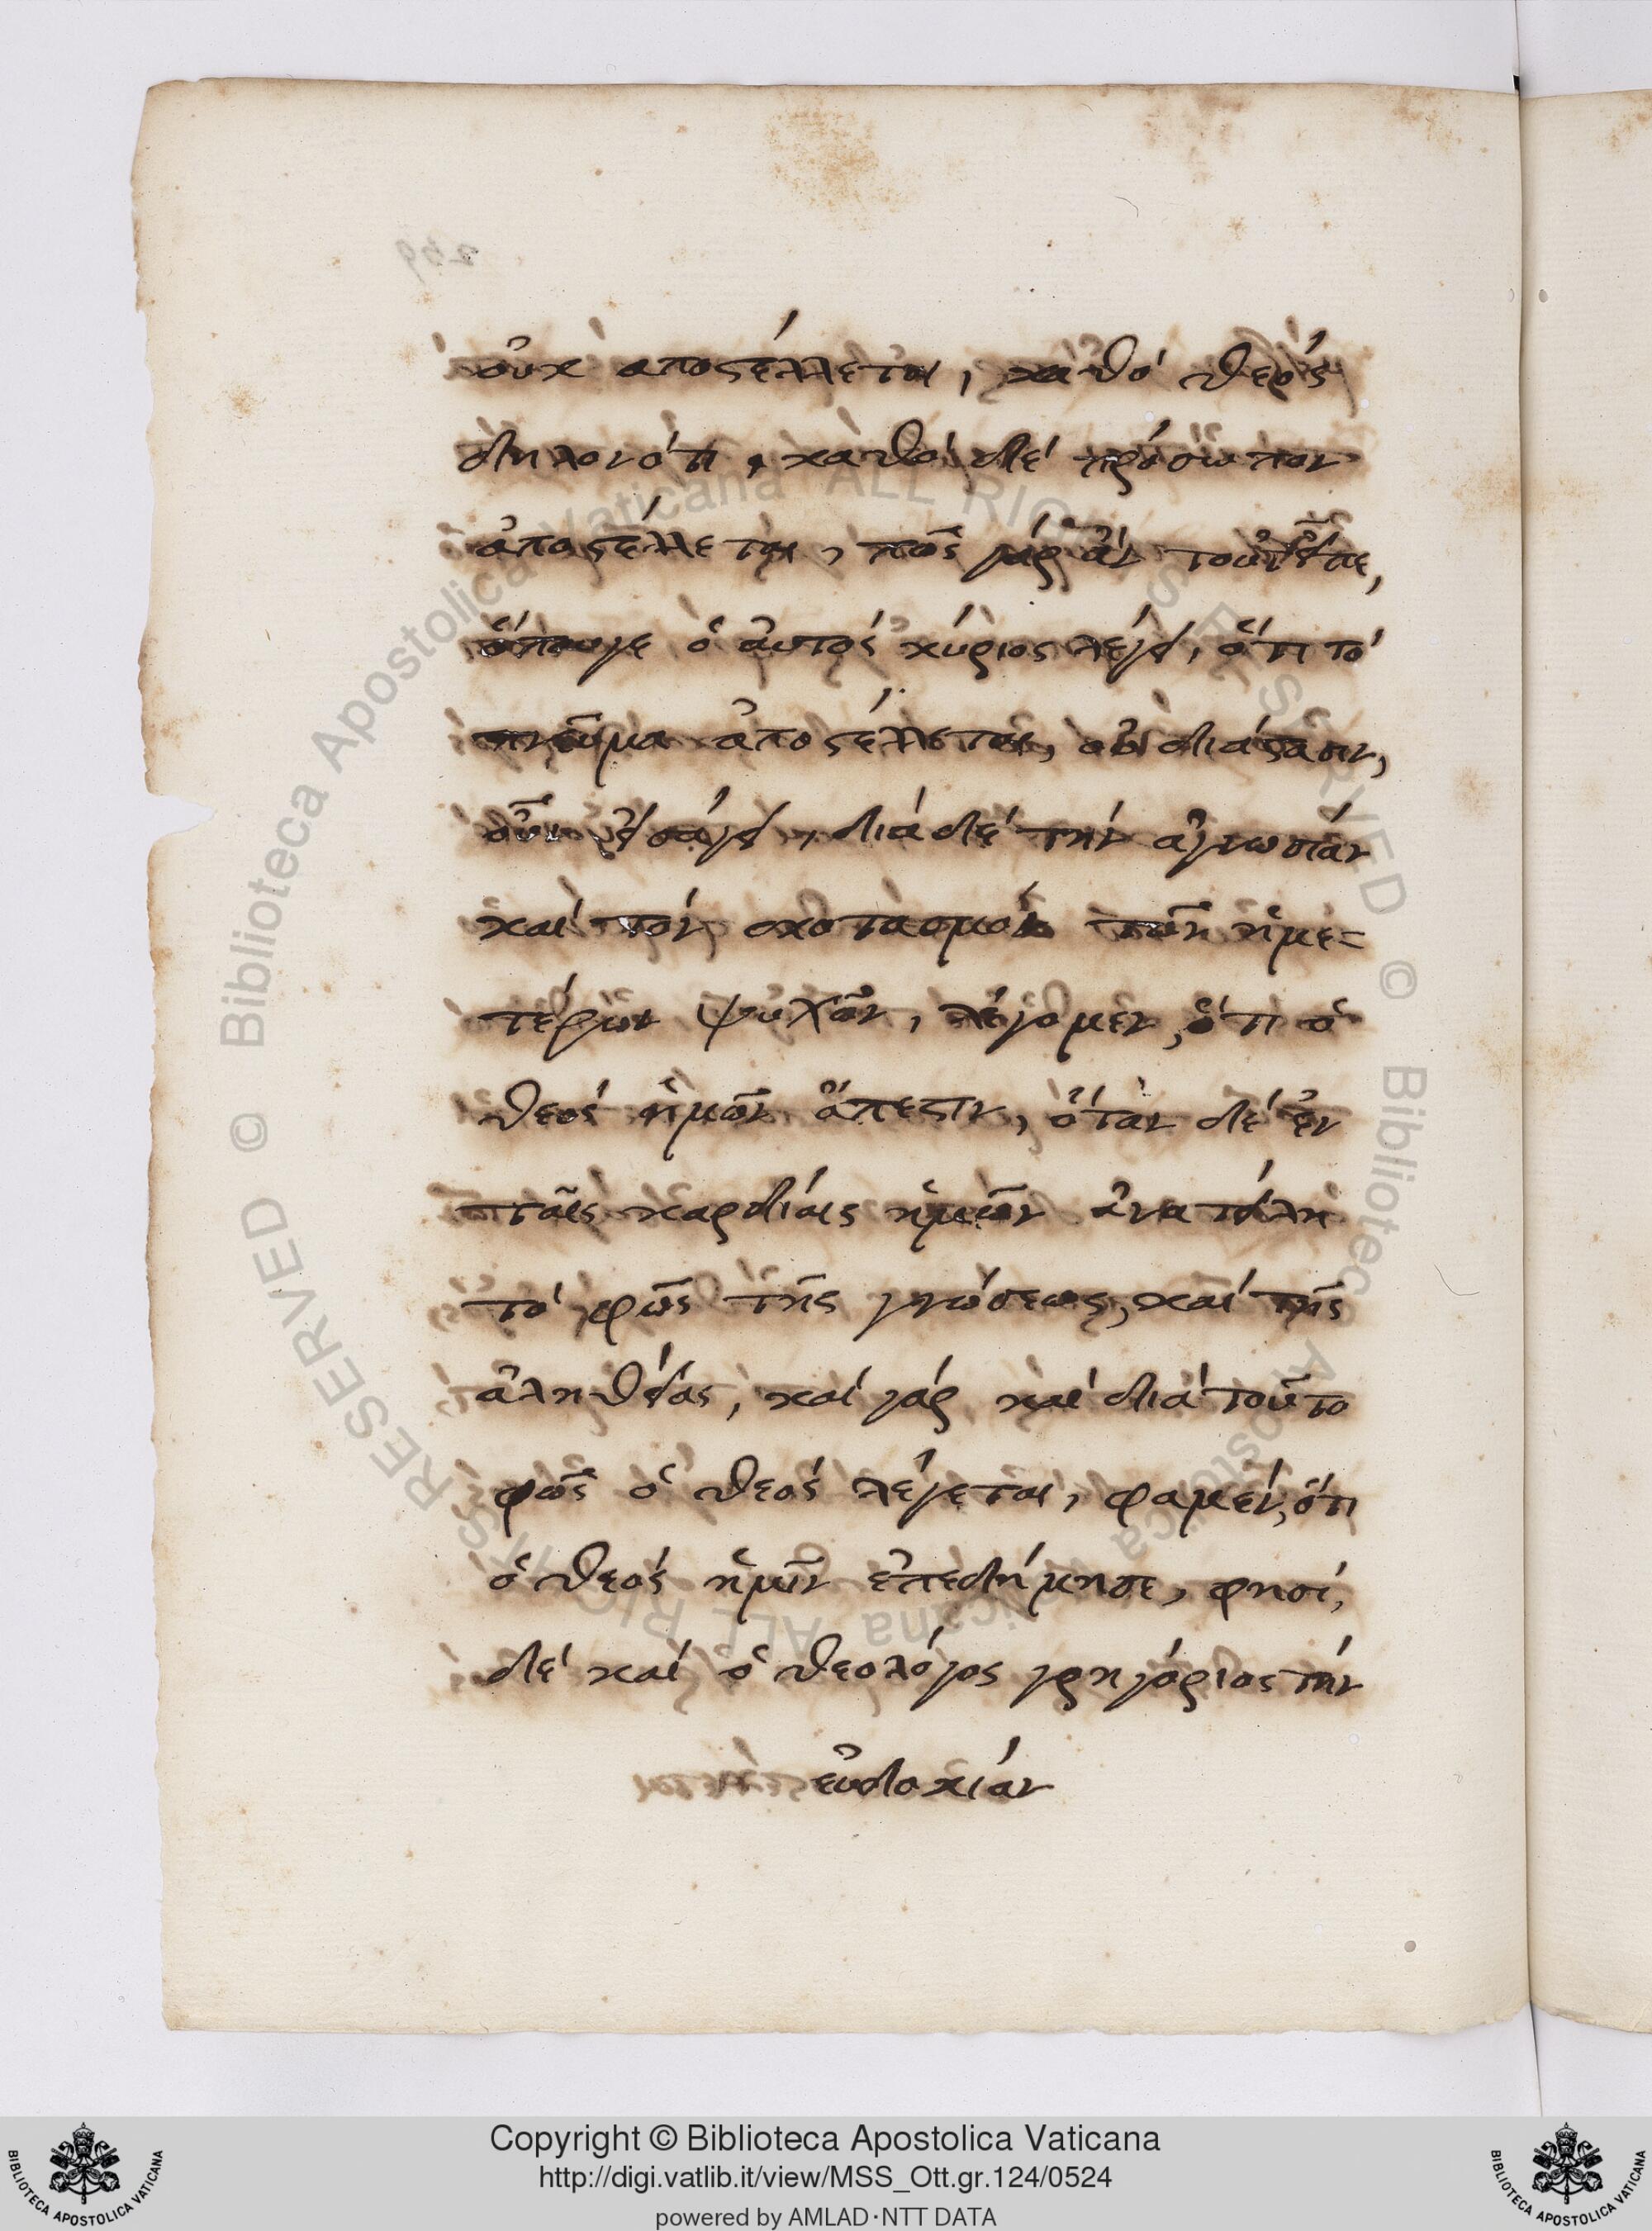 οὐκ ἀποστέλλεται, καθό θεός
δηλονότι, καθό δέ πρόσωπον
ἀποστέλλεται, πῶς γάρ ἄν τοῦτ' εἶπε,
ὅπουγε ὁ αὐτός κύριος λέγει, ὅτι τό
πνεῦμα ἀποστέλλεται, οὐ διάστασιν,
οὖν εἰσάγει, διά δέ τήν ἀγνωσίαν
καί τόν σκοτασμόν τῶν ἡμε-
τέρων ψυχῶν, λέγομεν, ὅτι ὁ
θεός ἡμῶν ἄπεστιν, ὅταν δέ ἐν
ταῖς καρδίαις ἡμῶν ἀνατείλη
τό φῶς τῆς γνώσεως, καί τῆς
ἀληθείας, καί γάρ καί διά τοῦτο
φῶς ὁ θεός λέγεται, φαμέν, ὅτι
ὁ θεός ἡμῖν ἐπεδήμησε, φησί,
δέ καί ὁ θεολόγος γρηγόριος τήν
εὐδοκίαν
Copyright © Biblioteca Apostolica Vaticana
http://digi.vatlib.it/view/MSS_Ott.gr.124/0524
powered by AMLAD·NTT DATA
BIBLIOTECA APOSTOLICA VATICANA
BIBLIOTECA APOSTOLICA VATICANA
© Biblioteca Apostolica Vaticana ALL RIGHTS RESERVED © Biblioteca Apostolica Vaticana ALL RIGHTS RESERVED